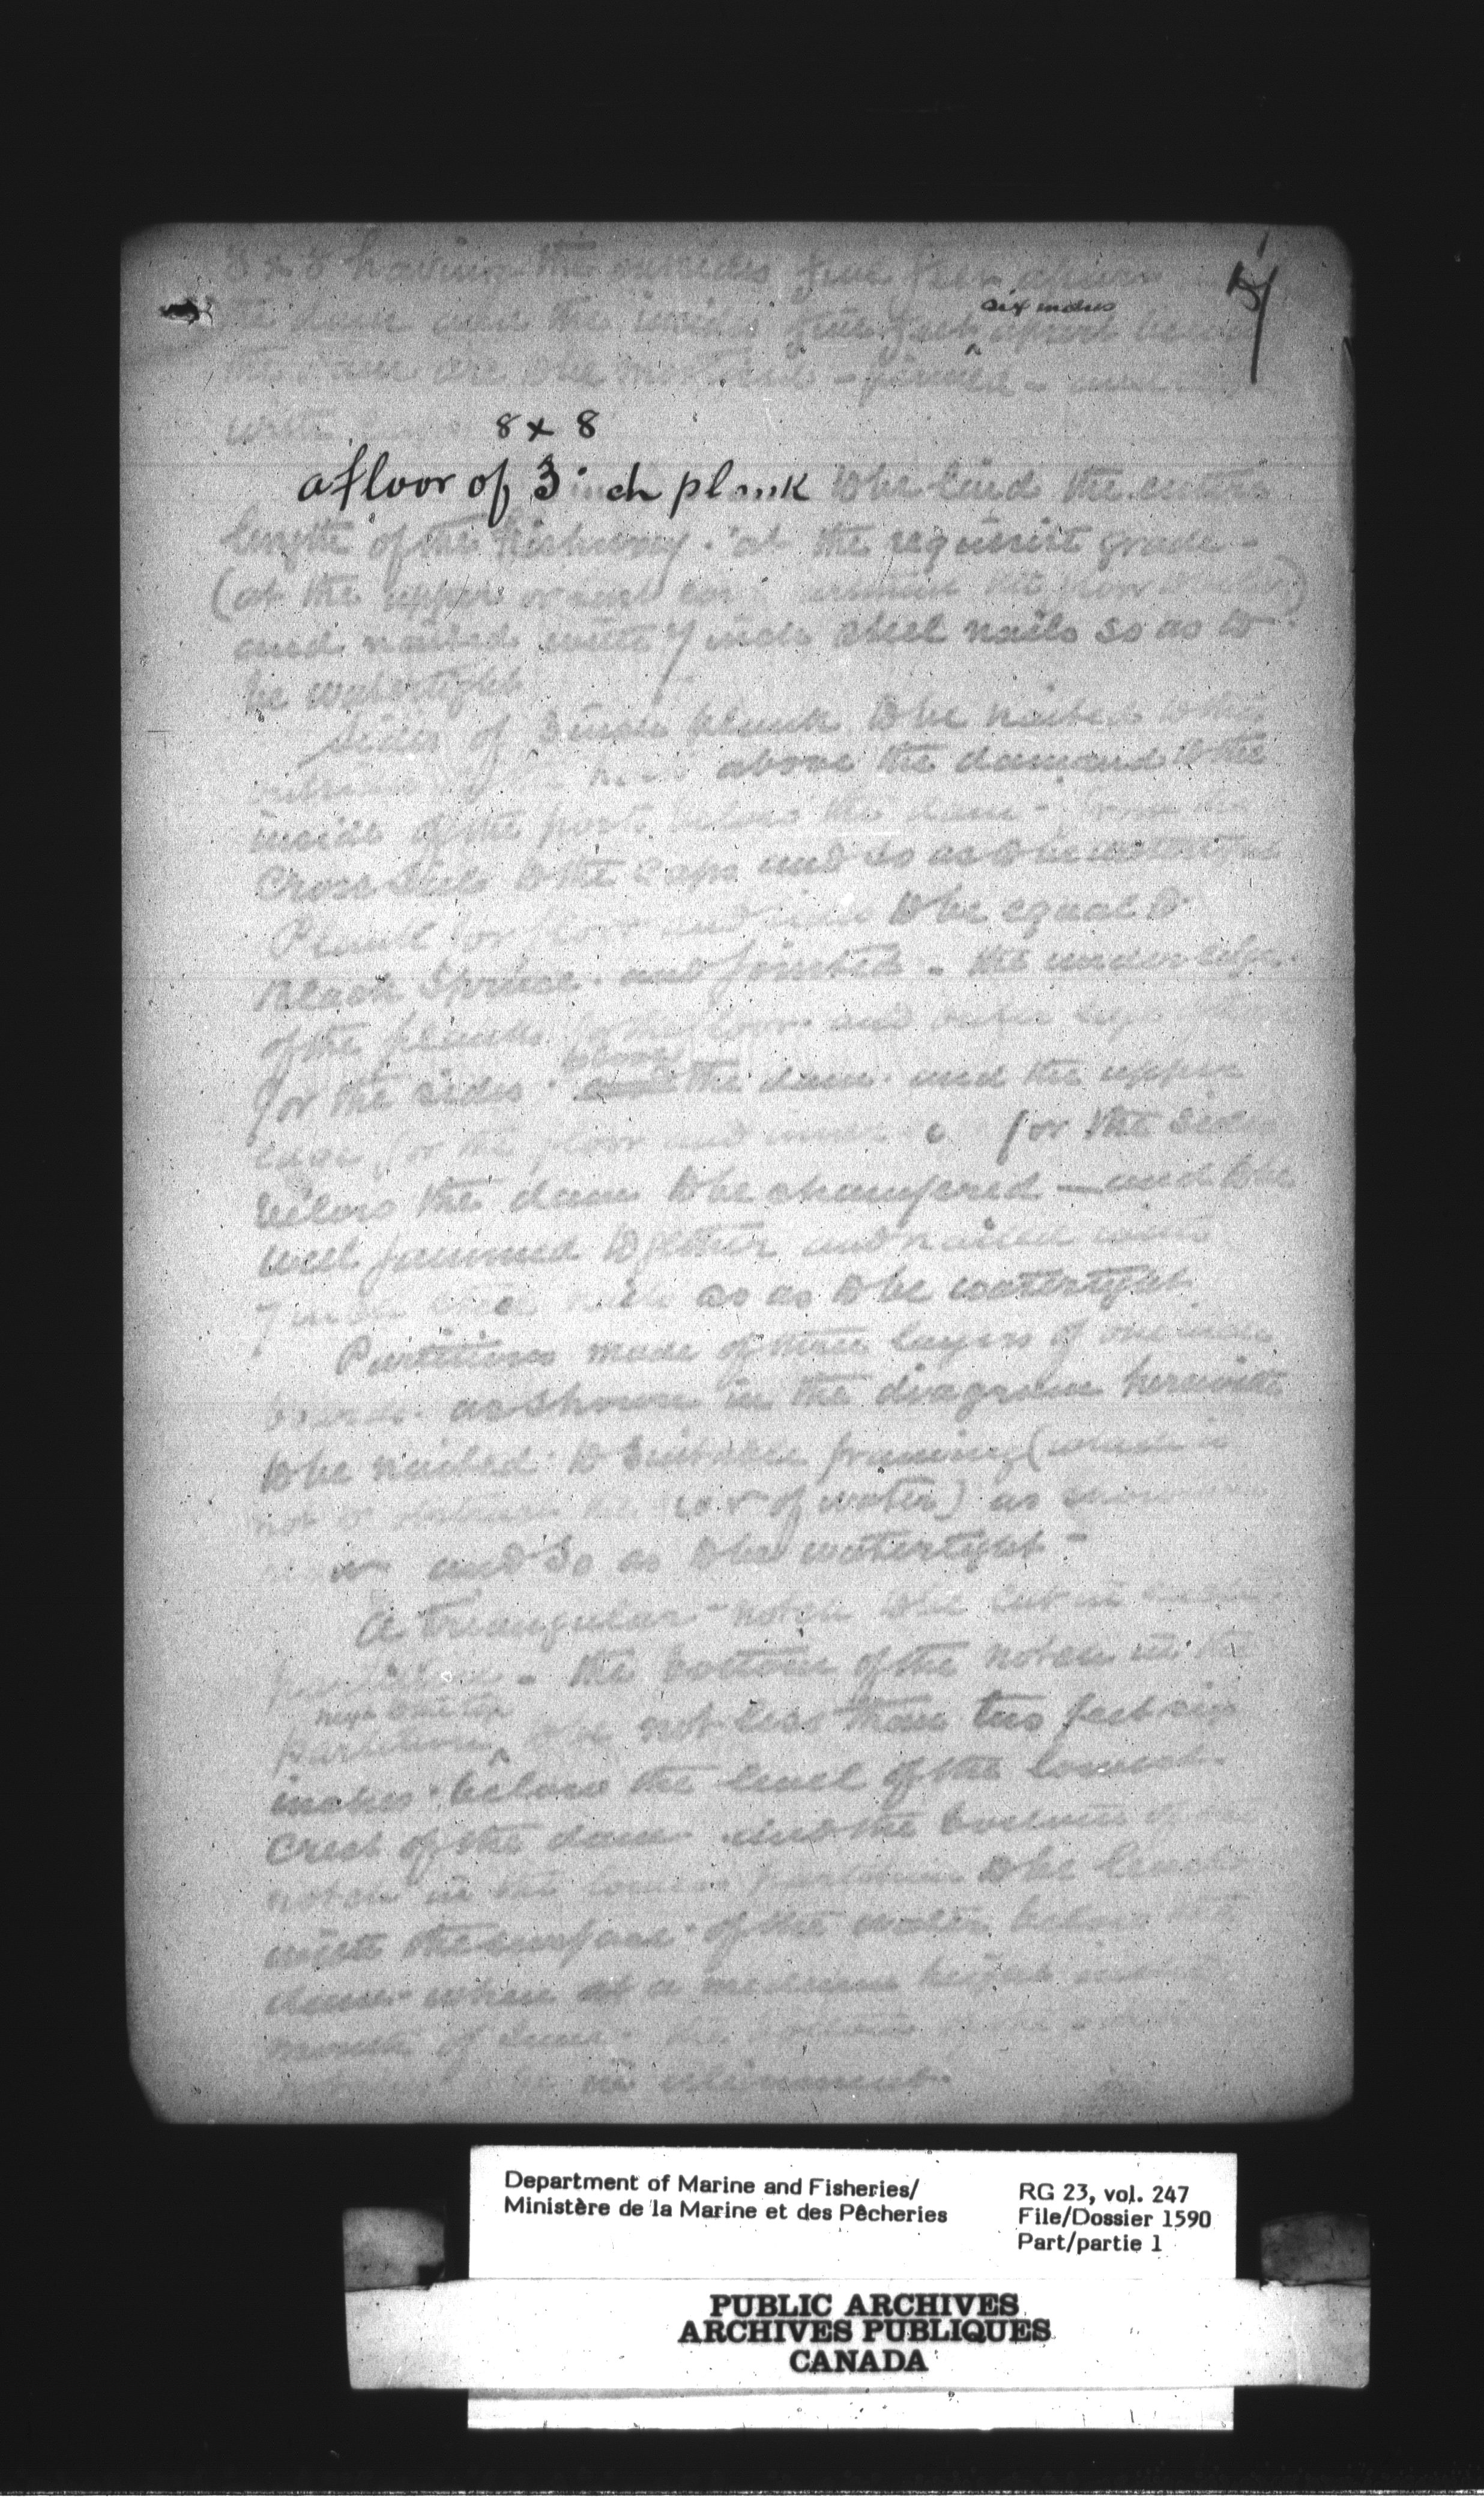 8 x 8 having the outsides five feet above
the dam and the insides five feet six inches apart below
the dam are to be mortised - joined - and
with
8 x 8
a floor of 3 inch plank to be laid the entire
length of the Fishway. at the requisite grade -
(at the upper
and nailed with 7 inch steel nails so as to
be watertight
Sides of 3 inch plank to be nailed to the
outside of the above the dam and to the
inside of the posts below the dam - from the
cross sills to the caps and so as to be watertight
Plank for floor and sides to be equal to
Black Spruce. and jointed - the under edge
of the planks for the floor and outer edge
for the sides above the dam. and the upper
edge for the floor and inner for the sides
below the dam to be champered — and to be
well jammed together and nailed with
7 inch steel nails so as to be watertight
Partitions made of three layers of one inch
boards. as shown in the diagram herewith
to be nailed to suitable framing (which is
not to obstruct the flow of water) as
and so as to be watertight -
A Triangular notch to be cut in each
partition - the bottom of the notch in the
partition next the top to be not less than two feet six
inches below the level of the lowest
crest of the dam. and the bottom of the
notch in the lowest partition to be level
with the surface of the water below the
dam when at a medium height in the
month of June. the bottom of the
notches to be in alignment.
Department of Marine and Fisheries/
Ministère de la Marine et des Pêcheries
RG 23, vol. 247
File/Dossier 1590
Part/partie 1
PUBLIC ARCHIVES
ARCHIVES PUBLIQUES
CANADA